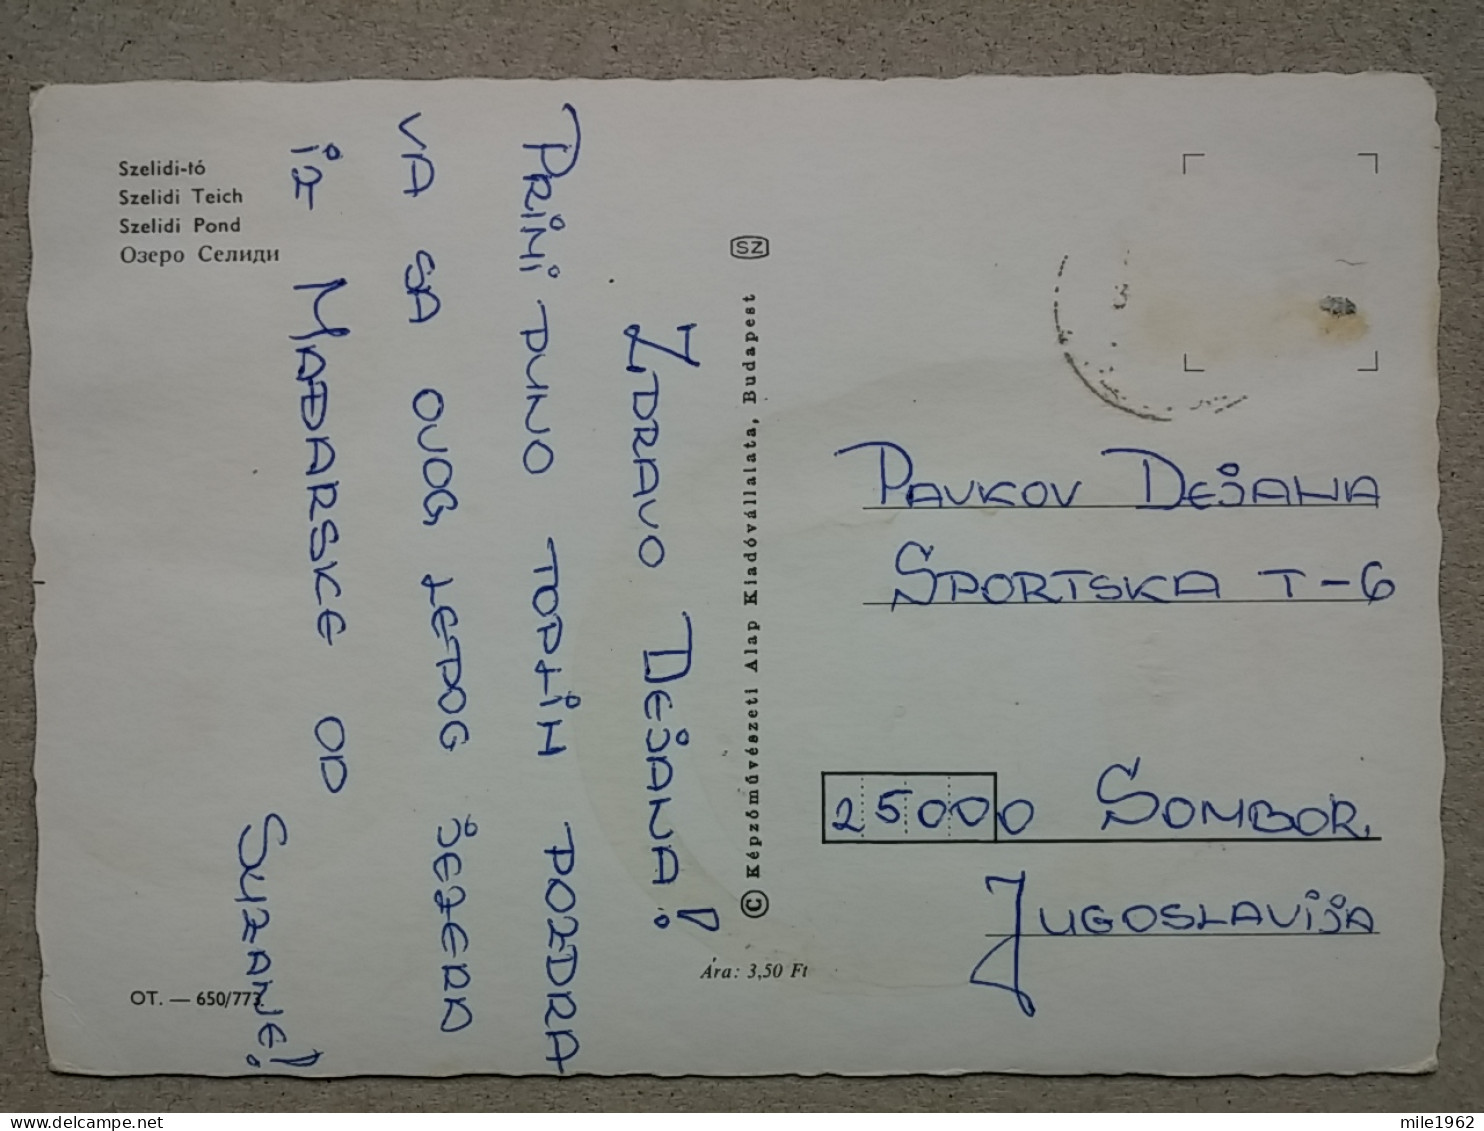 Szelidi-tó
Szelidi Teich
Szelidi Pond
Озеро Селиди
ZDRAVO DEJANA!
PRIMI PUNO TOPLIH POZDRA
VA SA OVOG LEPOG JEZERA
iz MAĐARSKE OD
SUZANE!
OT. — 650/773.
SZ
© Képzőművészeti Alap Kiadóvállalata, Budapest
Ára: 3,50 Ft
PAVKOV DEJANA
SPORTSKA T-6
25000 SOMBOR,
JUGOSLAVIJA
mile1962